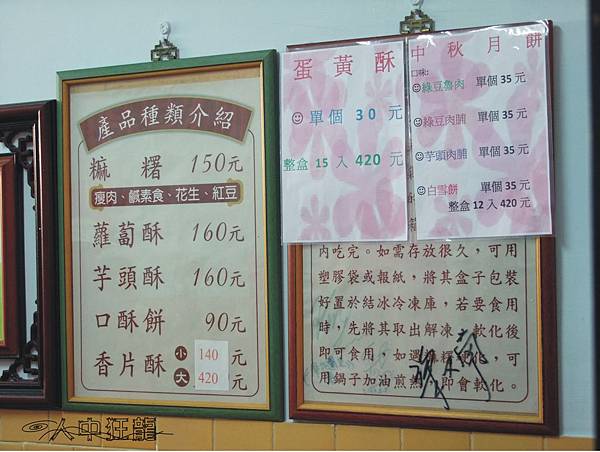 產品種類介紹
麻糬 150元
瘦肉、鹹素食、花生、紅豆
蘿蔔酥 160元
芋頭酥 160元
口酥餅 90元
香片酥 小 140 元
大 420 元
蛋黃酥
☺單個 30 元
整盒 15 入 420 元
中秋月餅
口味:
☺綠豆魯肉 單個 35 元
☺綠豆肉脯 單個 35 元
☺芋頭肉脯 單個 35 元
☺白雪餅 單個 35 元
整盒 12 入 420 元
內吃完。如需存放很久，可用
塑膠袋或報紙，將其盒子包裝
好置於結冰冷凍庫，若要食用
時，先將其取出解凍，軟化後
即可食用，如遇麻糬硬化，可
用鍋子加油煎熱，即會軟化。
人中狂龍